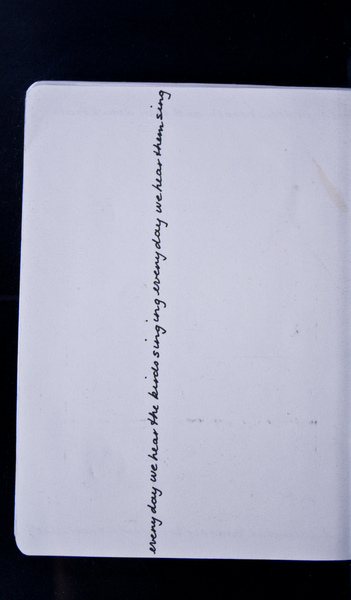 every day we hear the birds singing every day we hear them sing